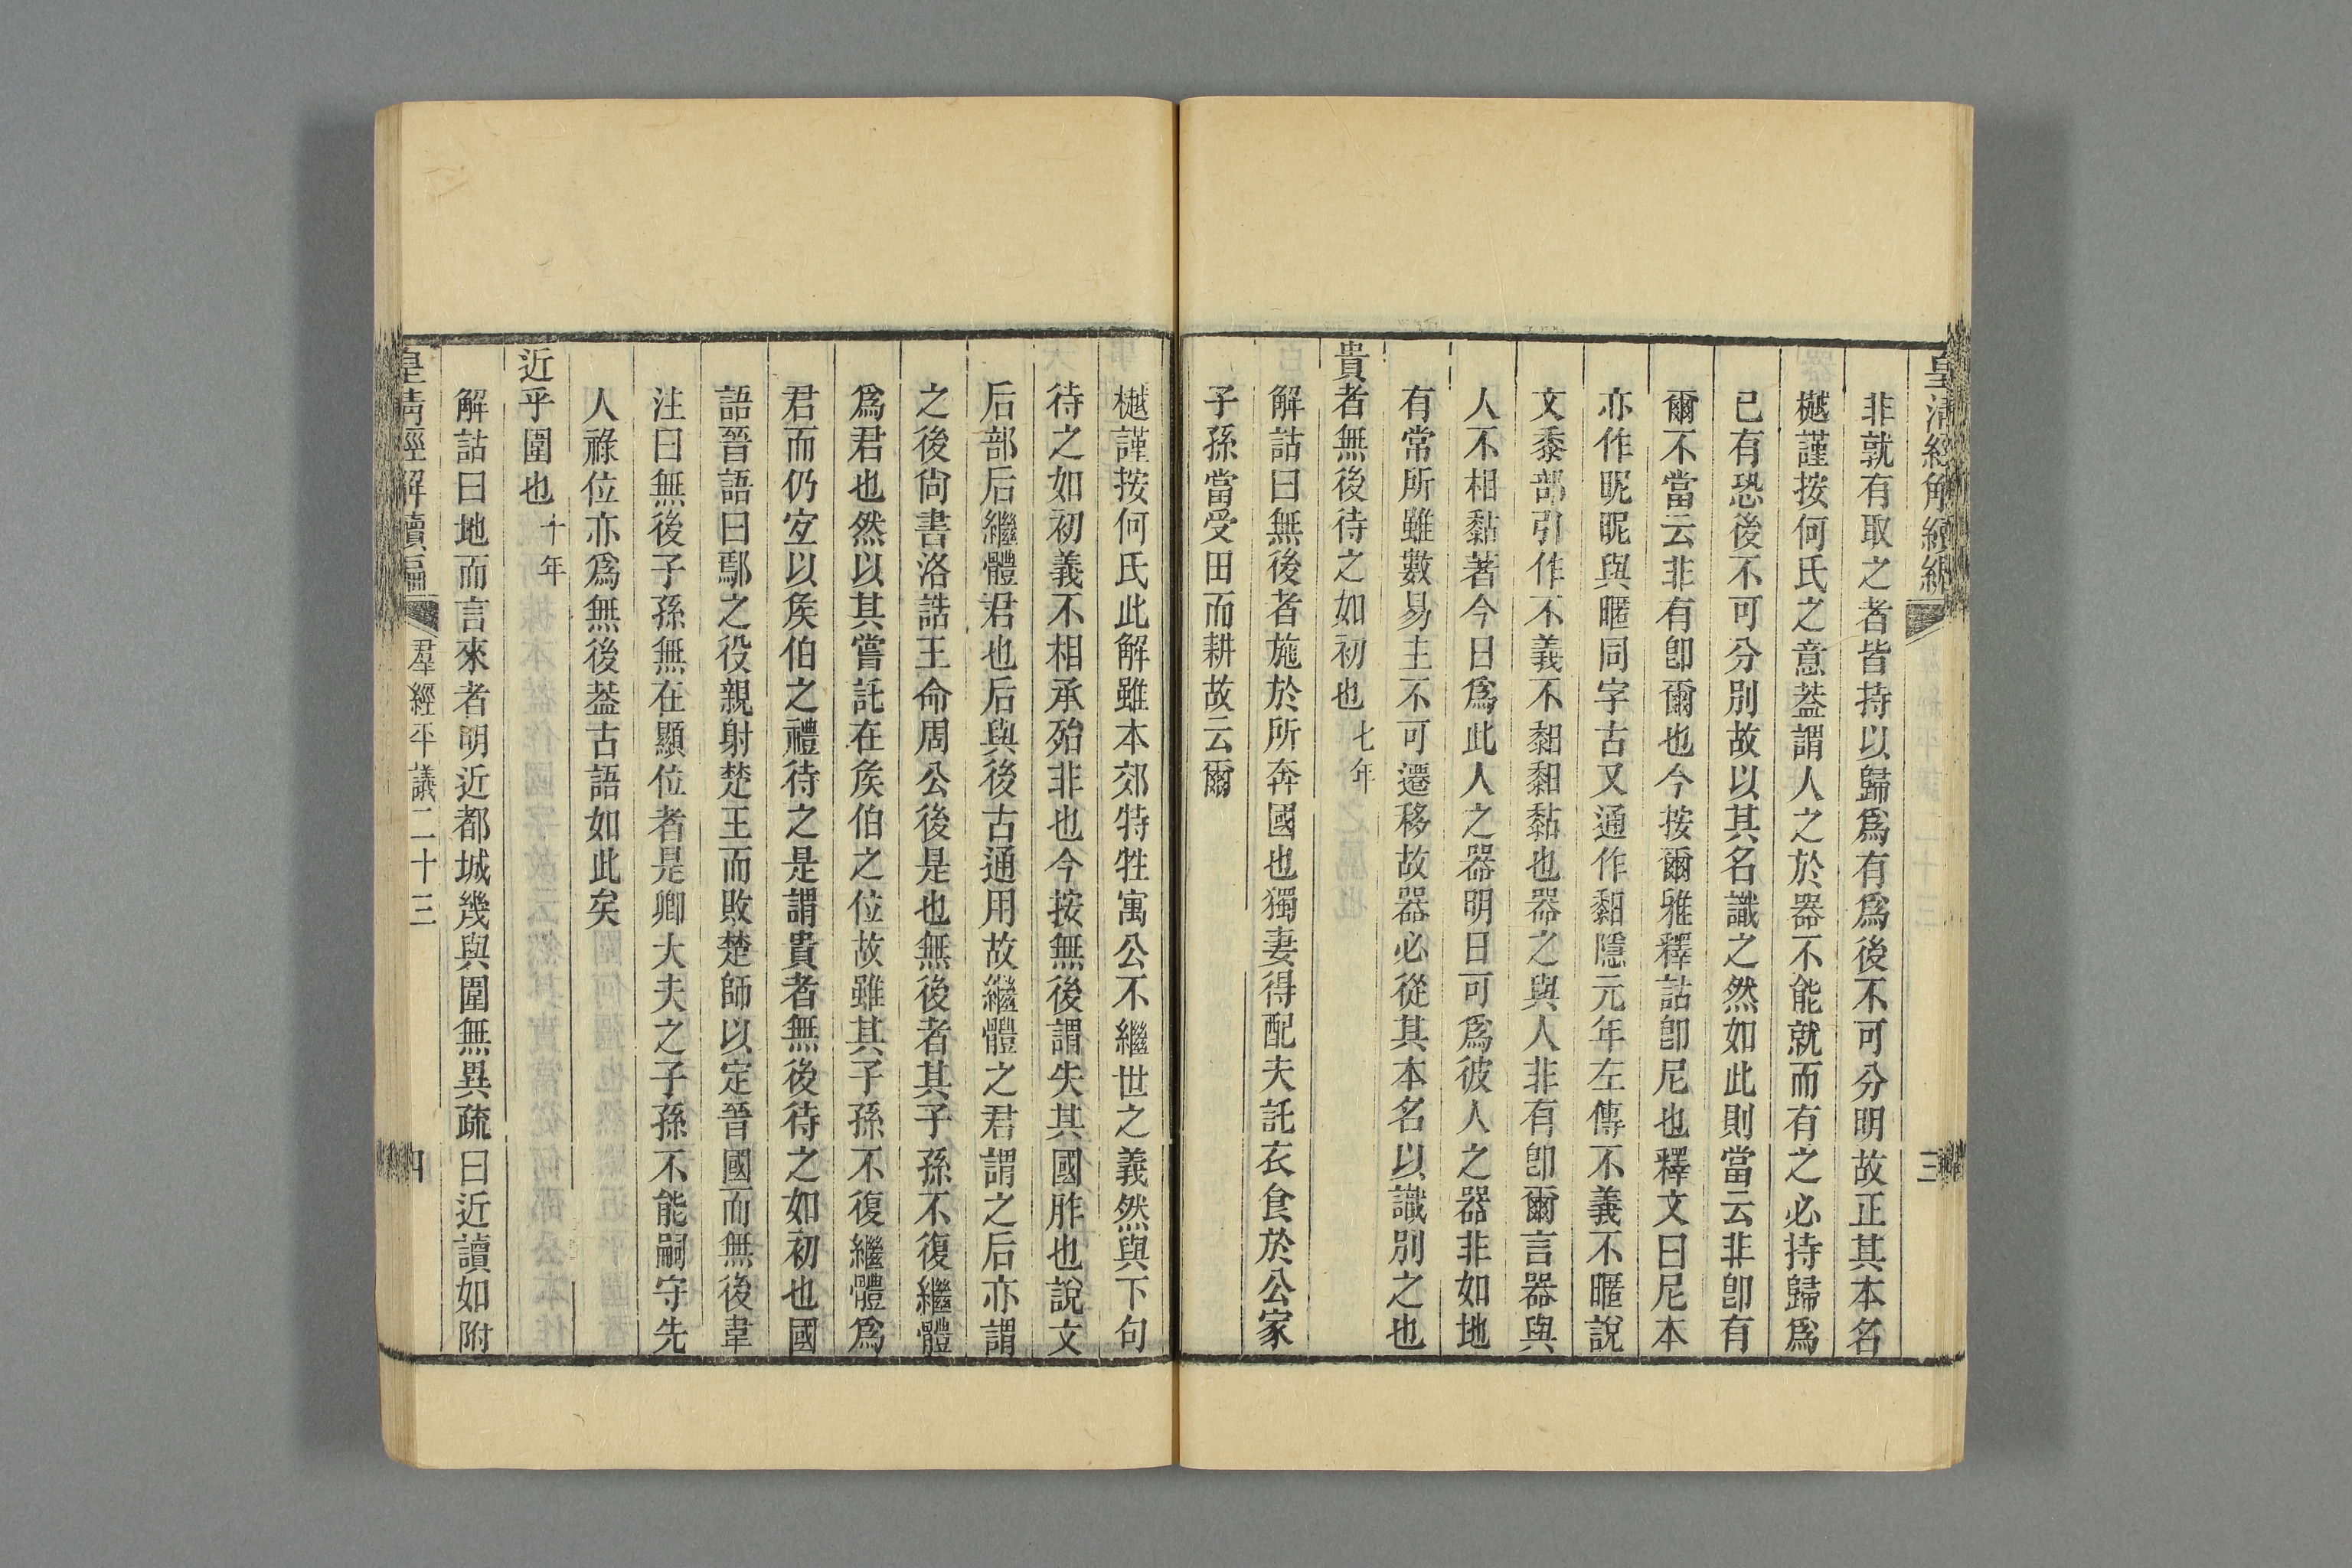 皇清經解續編
三
非就有取之者皆持以歸爲有爲後不可分明故正其本名
樾謹按何氏之意葢謂人之於器不能就而有之必持歸爲
已有恐後不可分別故以其名識之然如此則當云非卽有
爾不當云非有卽爾也今按爾雅釋詁卽尼也釋文曰尼本
亦作昵昵與暱同字古又通作䵑隱元年左傳不義不暱說
文黍部引作不義不䵑䵑黏也器之與人非有卽爾言器與
人不相黏著今日爲此人之器明日可爲彼人之器非如地
有常所雖數易主不可遷移故器必從其本名以識別之也
貴者無後待之如初也七年
解詁曰無後者施於所奔國也獨妻得配夫託衣食於公家
子孫當受田而耕故云爾
樾謹按何氏此解雖本郊特牲寓公不繼世之義然與下句
待之如初義不相承殆非也今按無後謂失其國胙也說文
后部后繼體君也后與後古通用故繼體之君謂之后亦謂
之後尙書洛誥王命周公後是也無後者其子孫不復繼體
爲君也然以其嘗託在矦伯之位故雖其子孫不復繼體爲
君而仍宐以矦伯之禮待之是謂貴者無後待之如初也國
語晉語曰鄢之役親射楚王而敗楚師以定晉國而無後韋
注曰無後子孫無在顯位者是卿大夫之子孫不能嗣守先
人祿位亦爲無後葢古語如此矣
近乎圍也十年
解詁曰地而言來者明近都城幾與圍無異疏曰近讀如附
皇清經解續編
羣經平議二十三
四